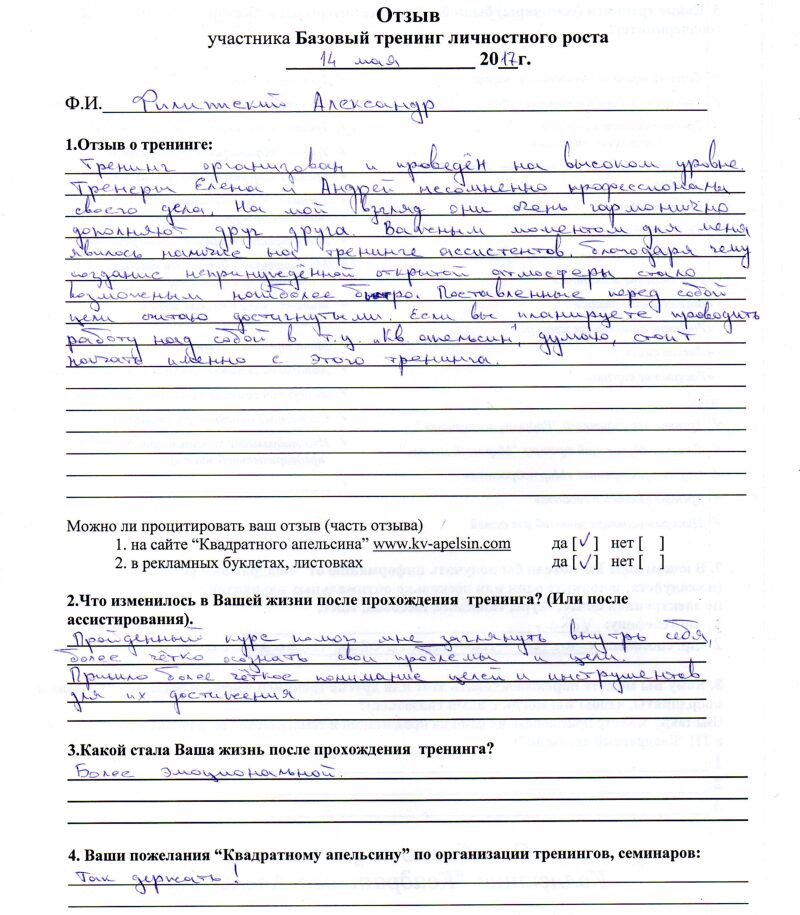 Отзыв
участника Базовый тренинг личностного роста
14 мая 2017г.
Ф.И. Филитский Александр
1.Отзыв о тренинге:
Тренинг организован и проведён на высоком уровне.
Тренеры Елена и Андрей несомненно профессионалы
своего дела. На мой взгляд они очень гармонично
дополняют друг друга. Важным моментом для меня
явилось наличие на тренинге ассистентов, благодаря чему
создание непринуждённой открытой атмосферы стало
возможным наиболее быстро. Поставленные перед собой
цели считаю достигнутыми. Если вы планируете проводить
работу над собой в т.ц. „Кв. апельсин", думаю, стоит
начать именно с этого тренинга.
Можно ли процитировать ваш отзыв (часть отзыва)
1. на сайте “Квадратного апельсина” www.kv-apelsin.com да [✓] нет [ ]
2. в рекламных буклетах, листовках да [✓] нет [ ]
2.Что изменилось в Вашей жизни после прохождения тренинга? (Или после
ассистирования).
Пройденный курс помог мне заглянуть внутрь себя,
более чётко осознать свои проблемы и цели.
Пришло более чёткое понимание целей и инструментов
для их достижения.
3.Какой стала Ваша жизнь после прохождения тренинга?
Более эмоциональной.
4. Ваши пожелания “Квадратному апельсину” по организации тренингов, семинаров:
Так держать!